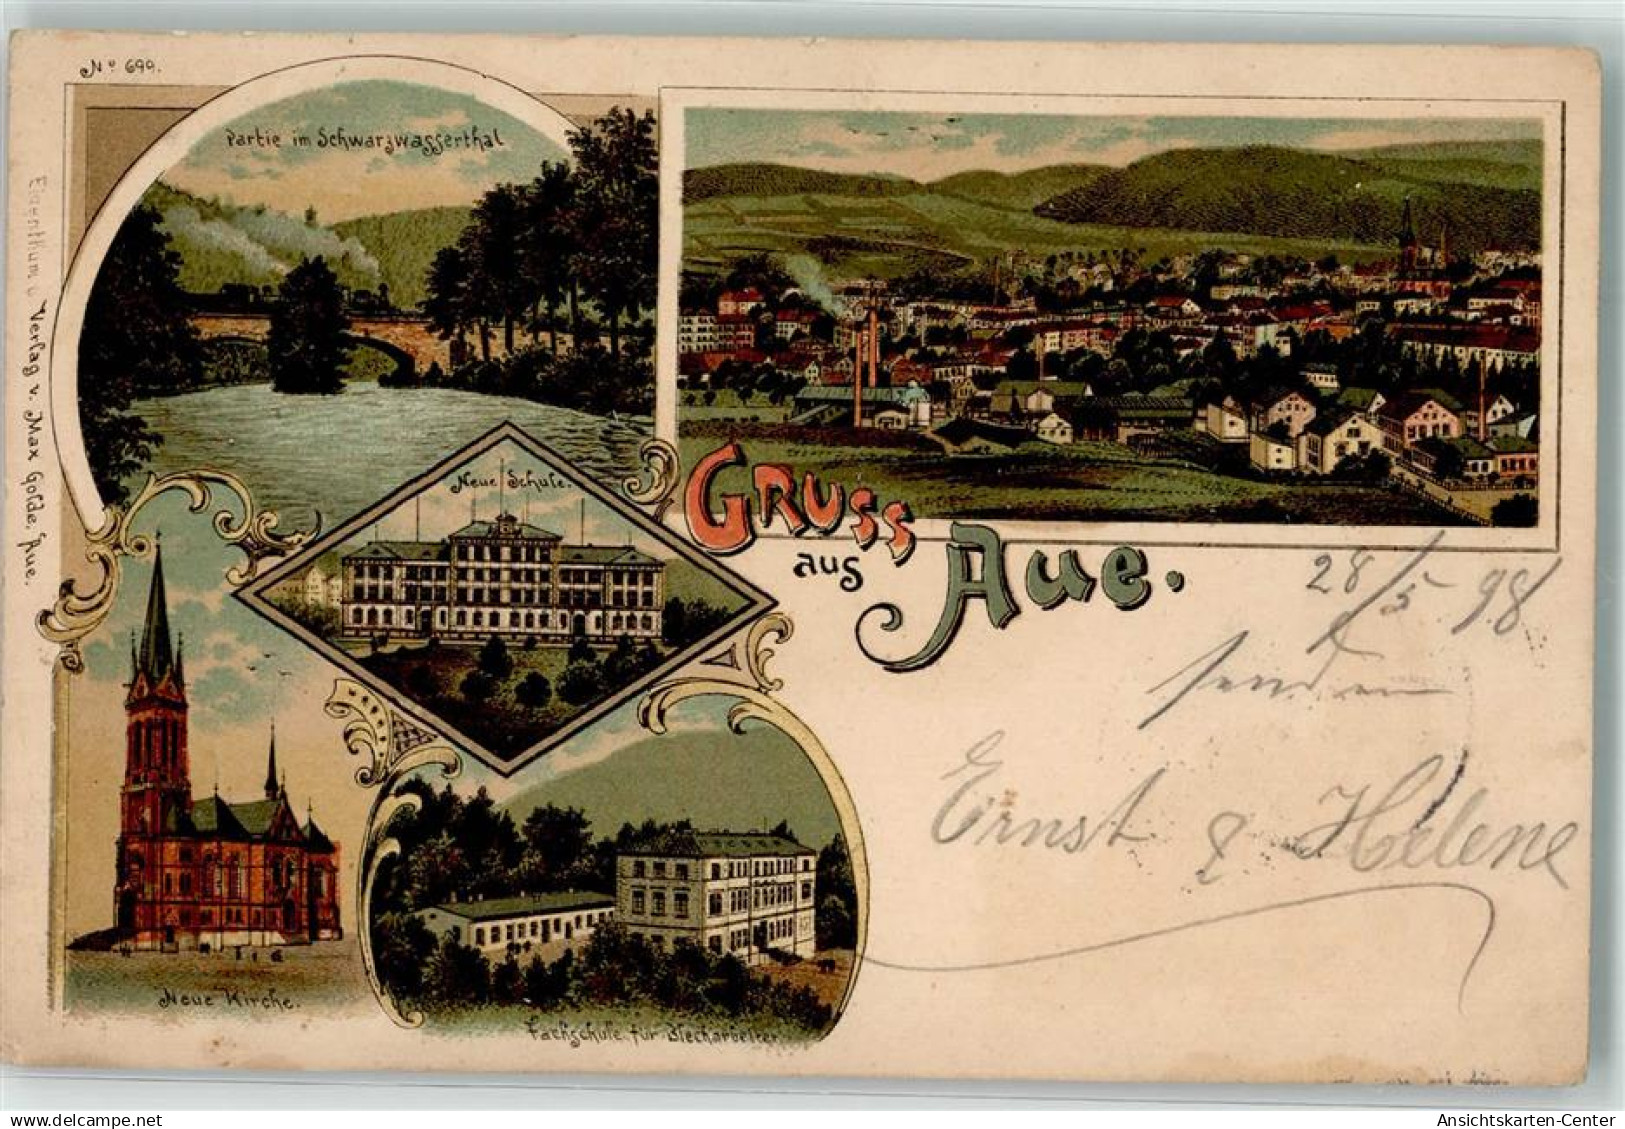 No 699.
Partie im Schwarzwasserthal
Eigenthum u Verlag v. Max Golde, Aue.
Neue Schule.
Gruss
aus
Aue.
28/5.98/
senden
Ernst & Helene
Neue Kirche.
Fachschule für Blecharbeiter.
Ansichtskarten-Center